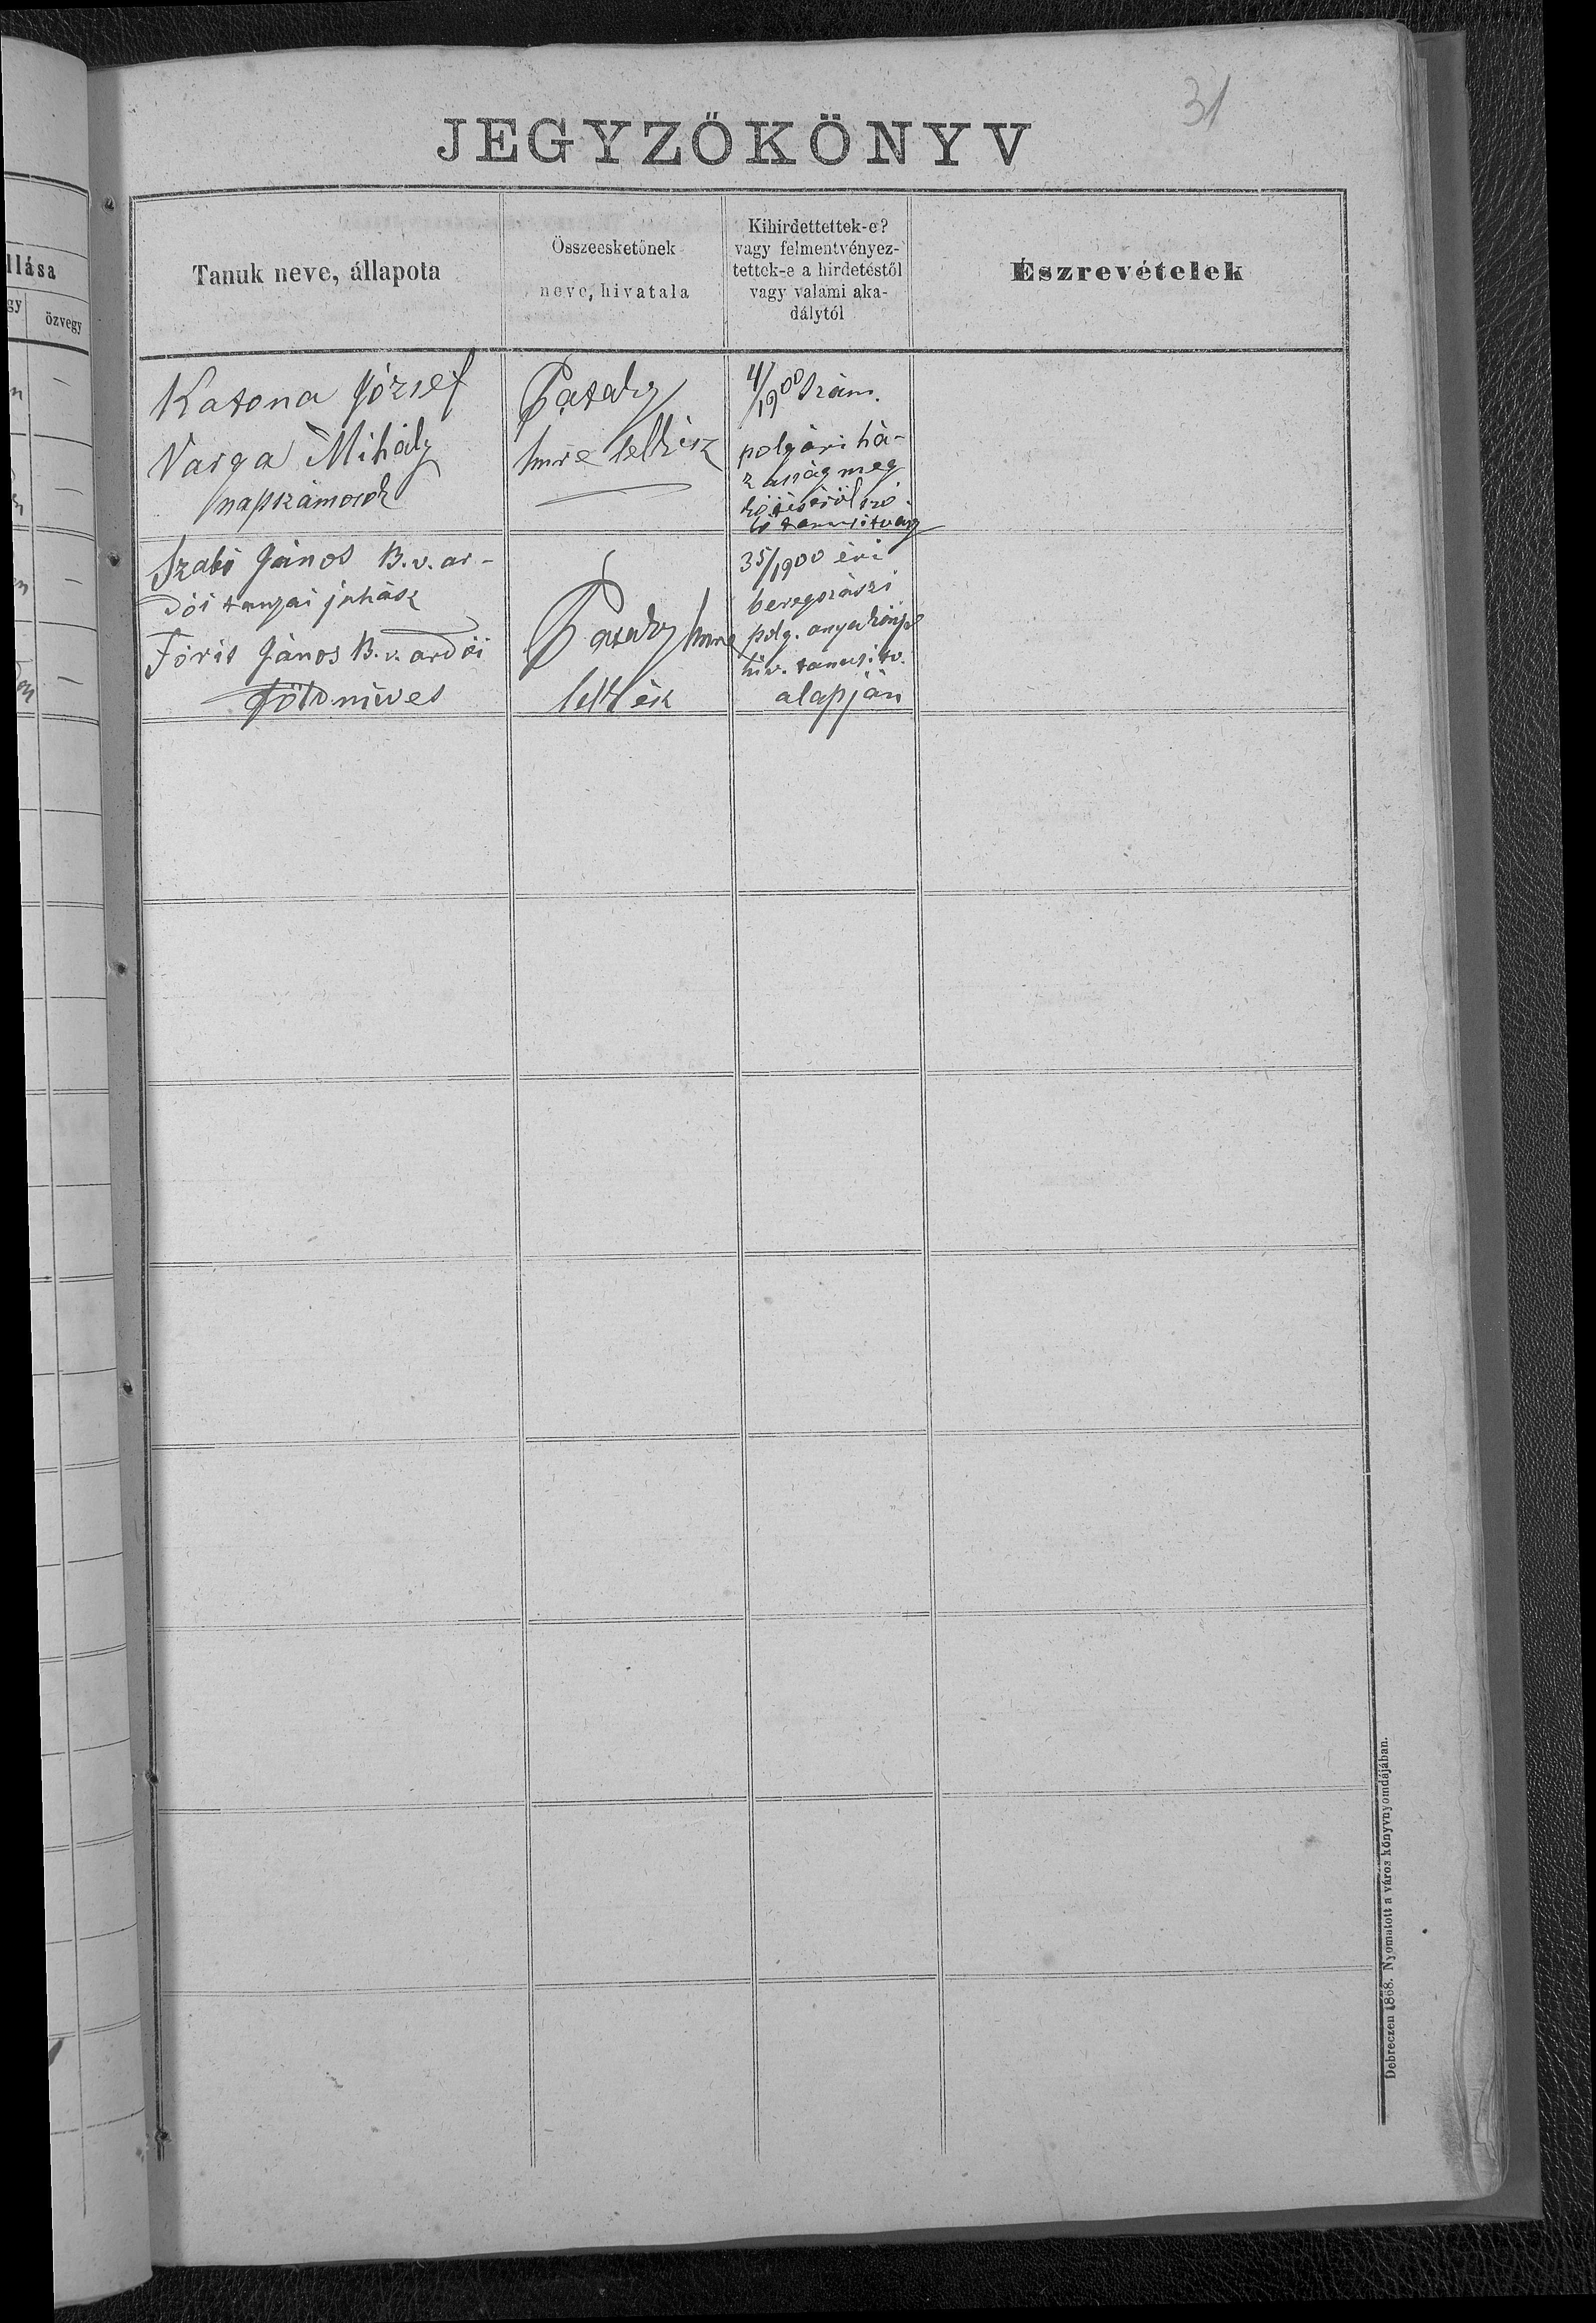 31
JEGYZŐKÖNYV
Tanuk neve, állapota
Összeesketőnek
neve, hivatala
Kihirdettettek-e?
vagy felmentvényez-
tettek-e a hirdetéstől
vagy valami aka-
dálytól
Észrevételek
llása
gy
özvegy
Katona József
Varga Mihály
napszámosok
Pataky
Imre lelkész
4/1900 szám.
polgári há-
zasság meg
kötéséről szó
ló tanusitvány
Szabó János B. v. ar-
dói tanyai juhász
Fóris János B. v. ardói
földmives
Pataky Imre
lelkész
35/1900 évi
beregszászi
polg. anyakönyvi
hiv. tanusitv.
alapján
Debreczen 1868. Nyomatott a város könyvnyomdájában.